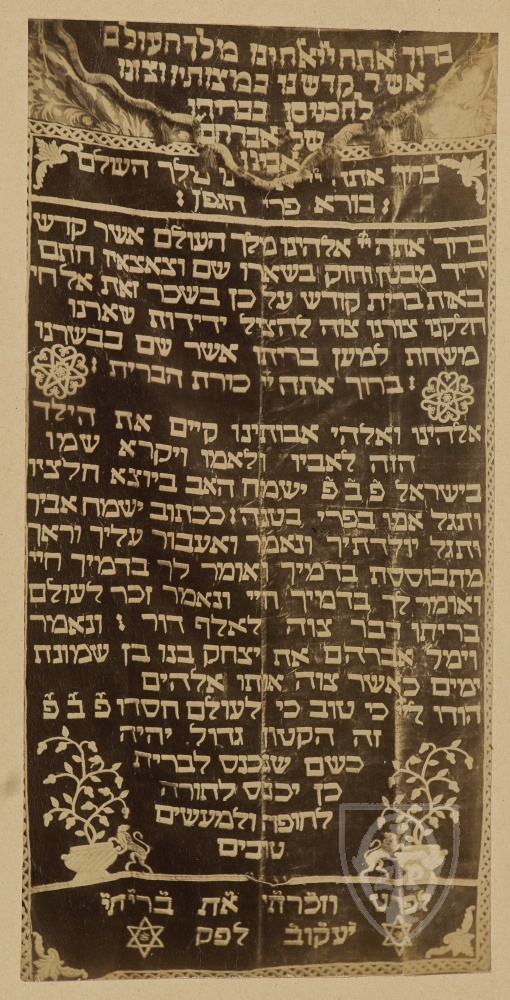 ברוך אתה יי אלהינו מלך העולם
אשר קדשנו במצותיו וצונו
להכניסו בבריתו
של אברהם
אבינו
ברוך אתה יי מלך העולם
בורא פרי הגפן :
ברוך אתה יי אלהינו מלך העולם אשר קדש
ידיד מבטן וחוק בשארו שם וצאצאיו חתם
באות ברית קודש על כן בשכר זאת אל חי
חלקנו צורנו צוה להציל ידידות שארנו
משחת למען בריתו אשר שם בבשרנו
: ברוך אתה יי כורת הברית :
אלהינו ואלהי אבותינו קיים את הילד
הזה לאביו ולאמו ויקרא שמו
בישראל פ ב פ ישמח האב ביוצא חלציו
ותגל אמו בפרי בטנה : ככתוב ישמח אביך
ותגל יולדתיך ונאמר ואעבור עליך וראך
מתבוססת בדמיך ואומר לך בדמיך חיי
ואומר לך בדמיך חיי ונאמר זכר לעולם
בריתו דבר צוה לאלף דור : ונאמר
וימל אברהם את יצחק בנו בן שמונת
ימים כאשר צוה אתו אלהים
הודו ליי כי טוב כי לעולם חסדו פ ב פ
זה הקטון גדול יהיה
כשם שנכנס לברית
כן יכנס לתורה
לחופה ולמעשים
טובים
וזכרתי את בריתי
יעקוב לפק